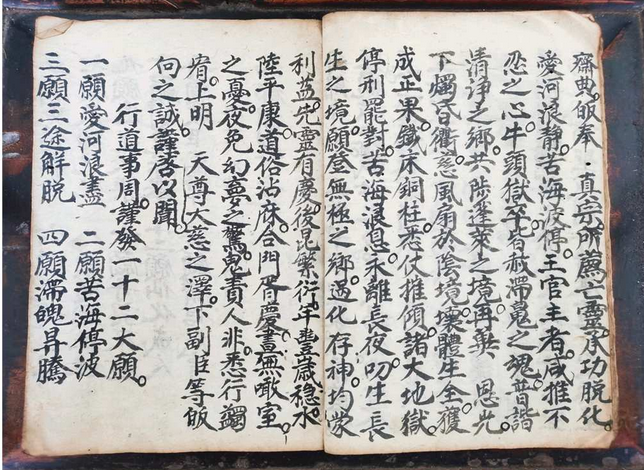 齋典。皈奉·真宗。所薦亡靈。承功脱化。
愛河浪靜。苦海波停。王官主者。咸推不
忍之心。牛頭獄卒。皆赦滯䰟之魂。普詣
清淨之鄉。共陟蓬萊之境。再㷼 恩光
下燭昏衢。慈風扇於陰境。壞體生全。獲
成正果。鐵床銅柱。悉仗推傾。諸大地獄。
停刑罷對。苦海浪息。永離長夜。叨生長
生之境。願登無極之鄉。過化存神。均蒙
利益。先靈有慶。後昆繁衍。年豐歲稔。水
陸平康。道俗沾庥。合門胥慶。晝無瞰室。
之憂。夜免幻夢之驚。鬼責人非。悉行蠲
宥。上明 天尊大慈之澤。下副臣等皈
向之誠。謹善以聞。
行道事周。謹發一十二大願。
一願愛河浪盡 二願苦海停波
三願三途解脱 四願滯魄昇騰